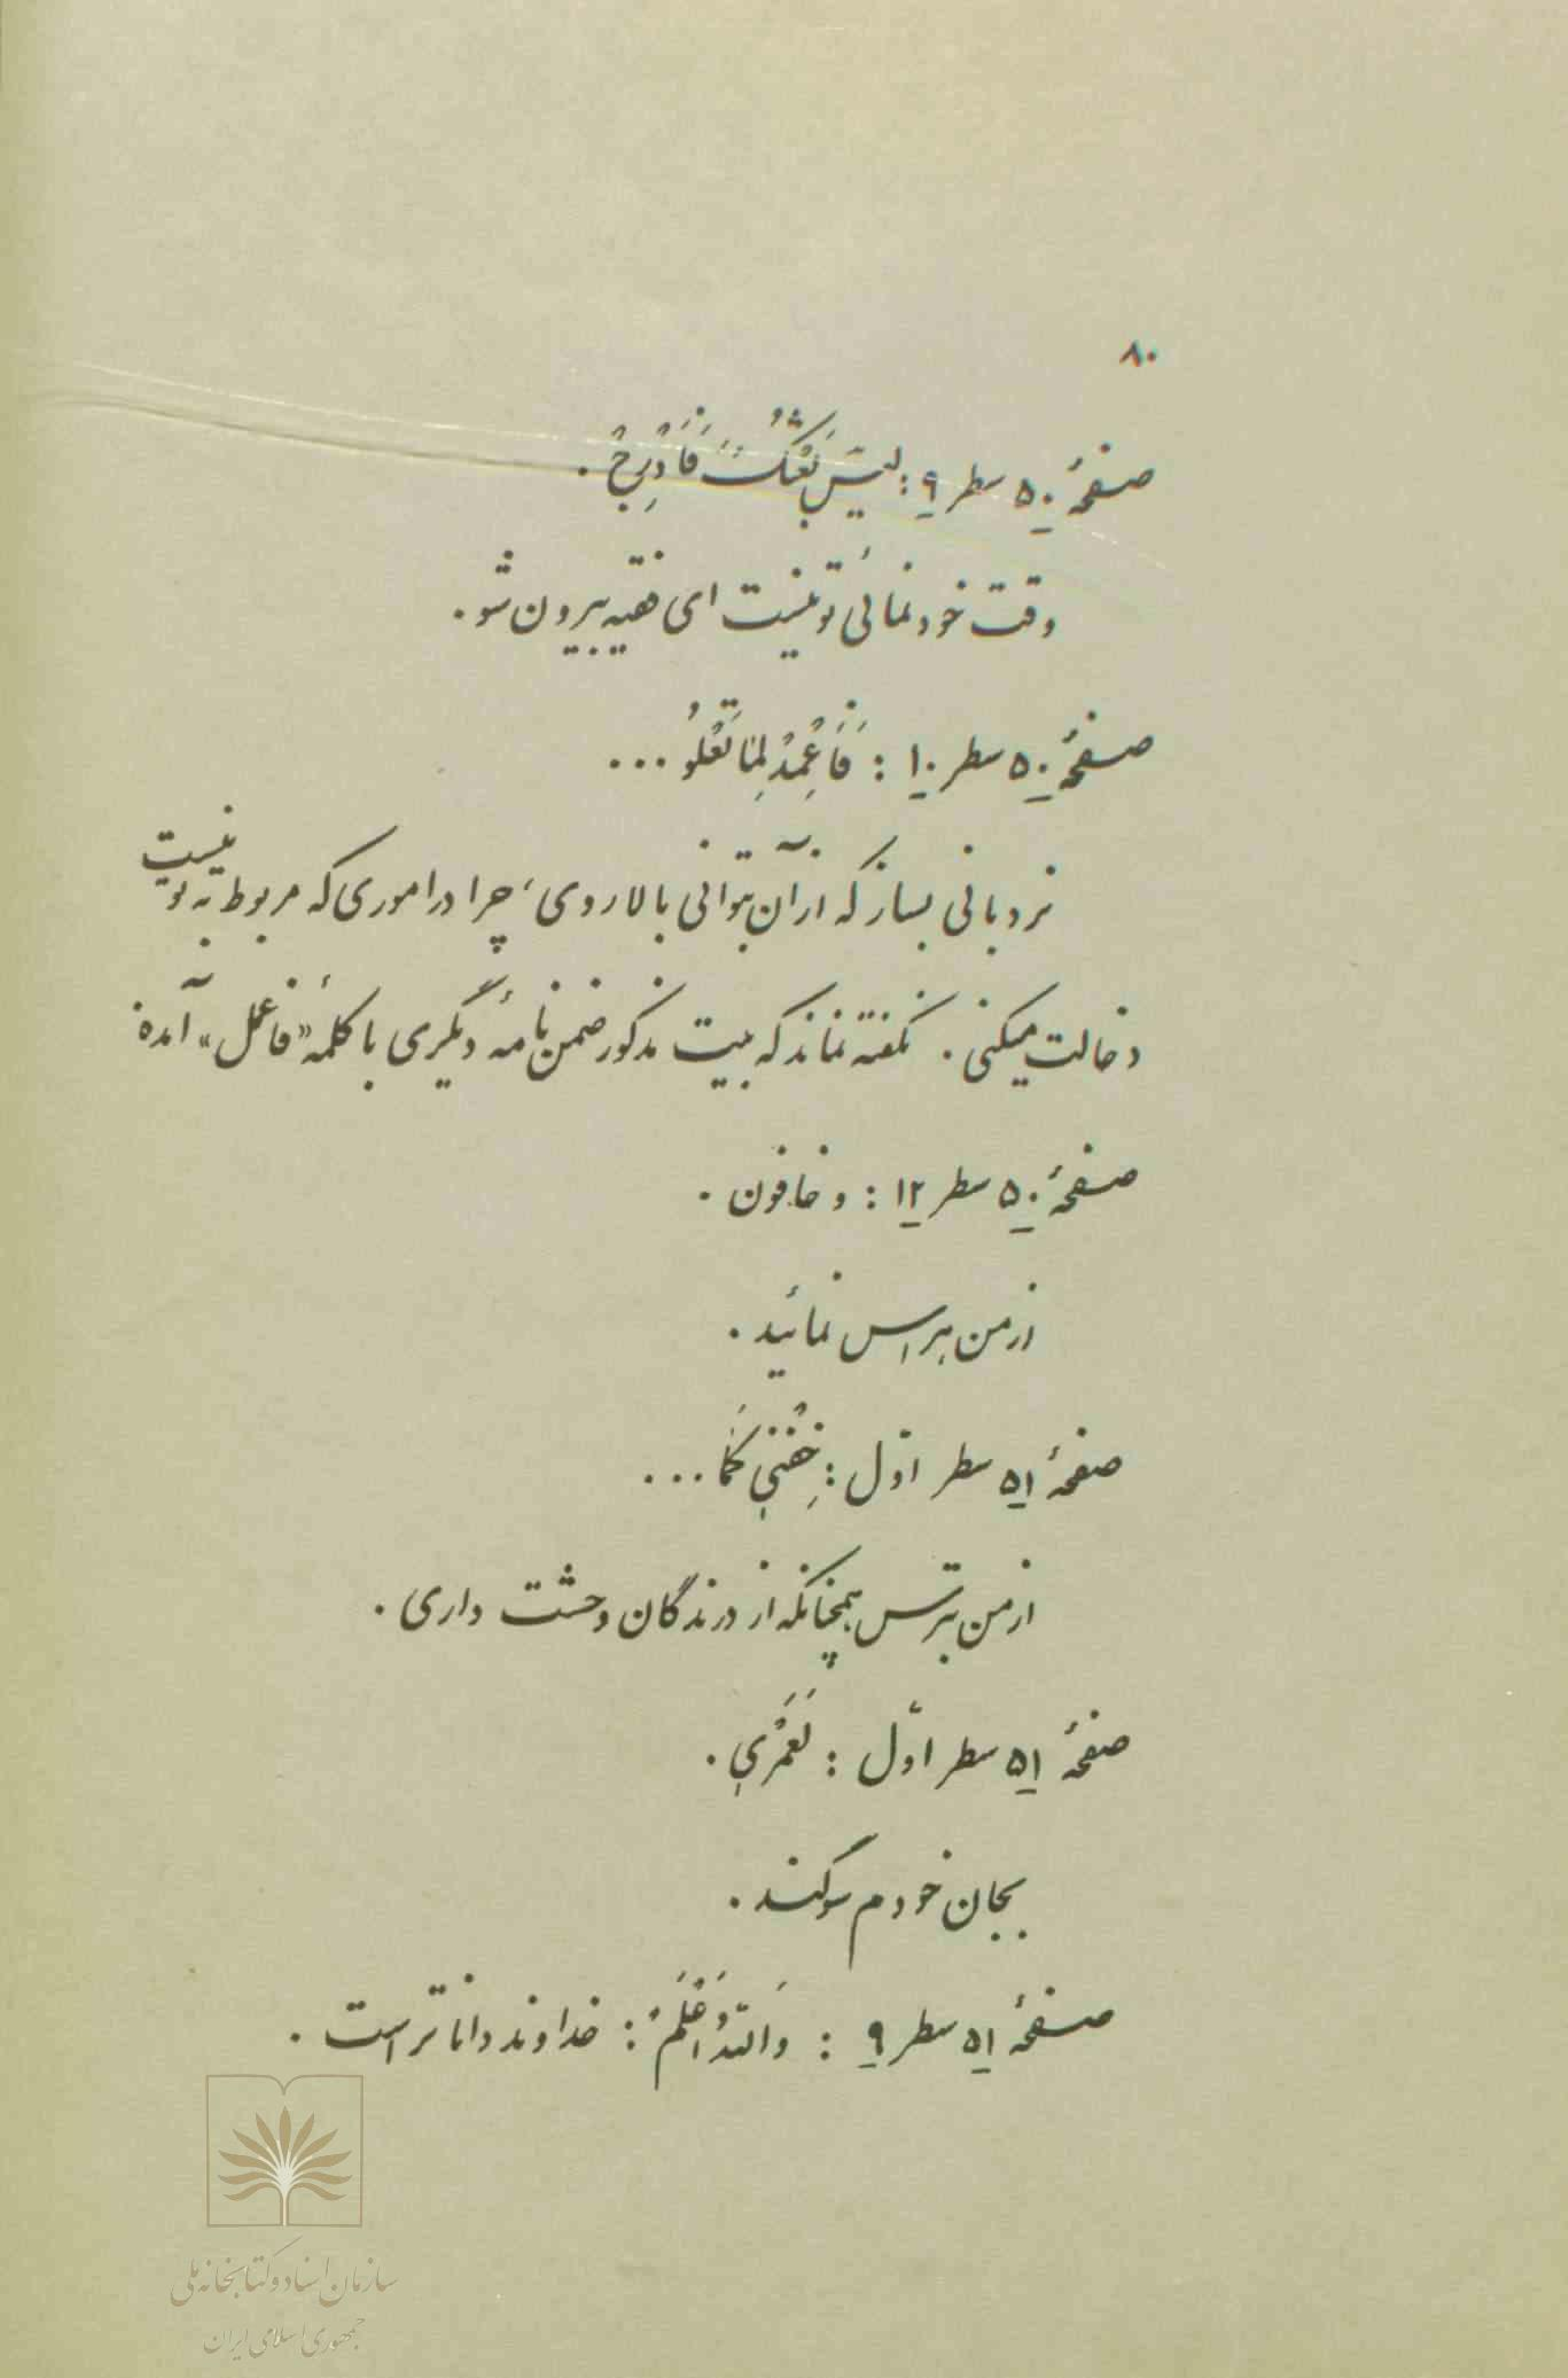 ۸۰
صفحهٔ ۵۰ سطر ۹: لَیسَ بِعُشِّکَ فَادْرُجْ.
وقت خودنمائی تو نیست ای فقیه بیرون شو.
صفحهٔ ۵۰ سطر ۱۰: فَاعْمِدْ لِمَا تَعْلُو ...
نردبانی بساز که از آن بتوانی بالا روی، چرا در اموری که مربوط به تو نیست
دخالت میکنی. نگفته نماند که بیت مذکور ضمن نامهٔ دیگری با کلمهٔ «فاعمل» آمده
صفحهٔ ۵۰ سطر ۱۲: و خافون.
از من هراس نمائید.
صفحهٔ ۵۱ سطر اوّل: خِفْنی کَمَا ...
از من بترس همچنانکه از درندگان وحشت داری.
صفحهٔ ۵۱ سطر اوّل: لَعَمْری.
بجان خودم سوگند.
صفحهٔ ۵۱ سطر ۹: وَاللّهُ اَعْلَمُ: خداوند داناتر است.
سازمان اسناد و کتابخانه ملی
جمهوری اسلامی ایران